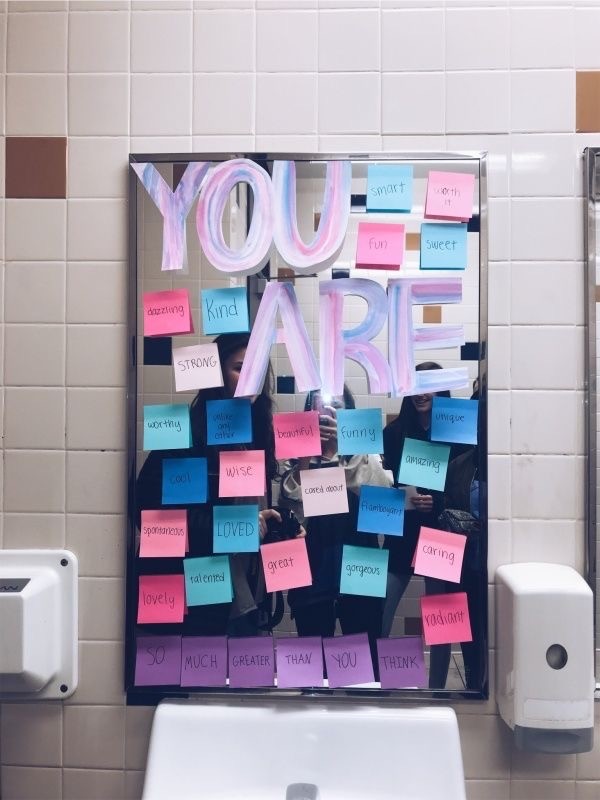 YOU
smart
worth it
fun
sweet
ARE
dazzling
kind
STRONG
worthy
unlike
any
other
beautiful
funny
unique
cool
wise
cared about
amazing
flamboyant
spontaneous
LOVED
great
gorgeous
caring
lovely
talented
radiant
SO MUCH GREATER THAN YOU THINK